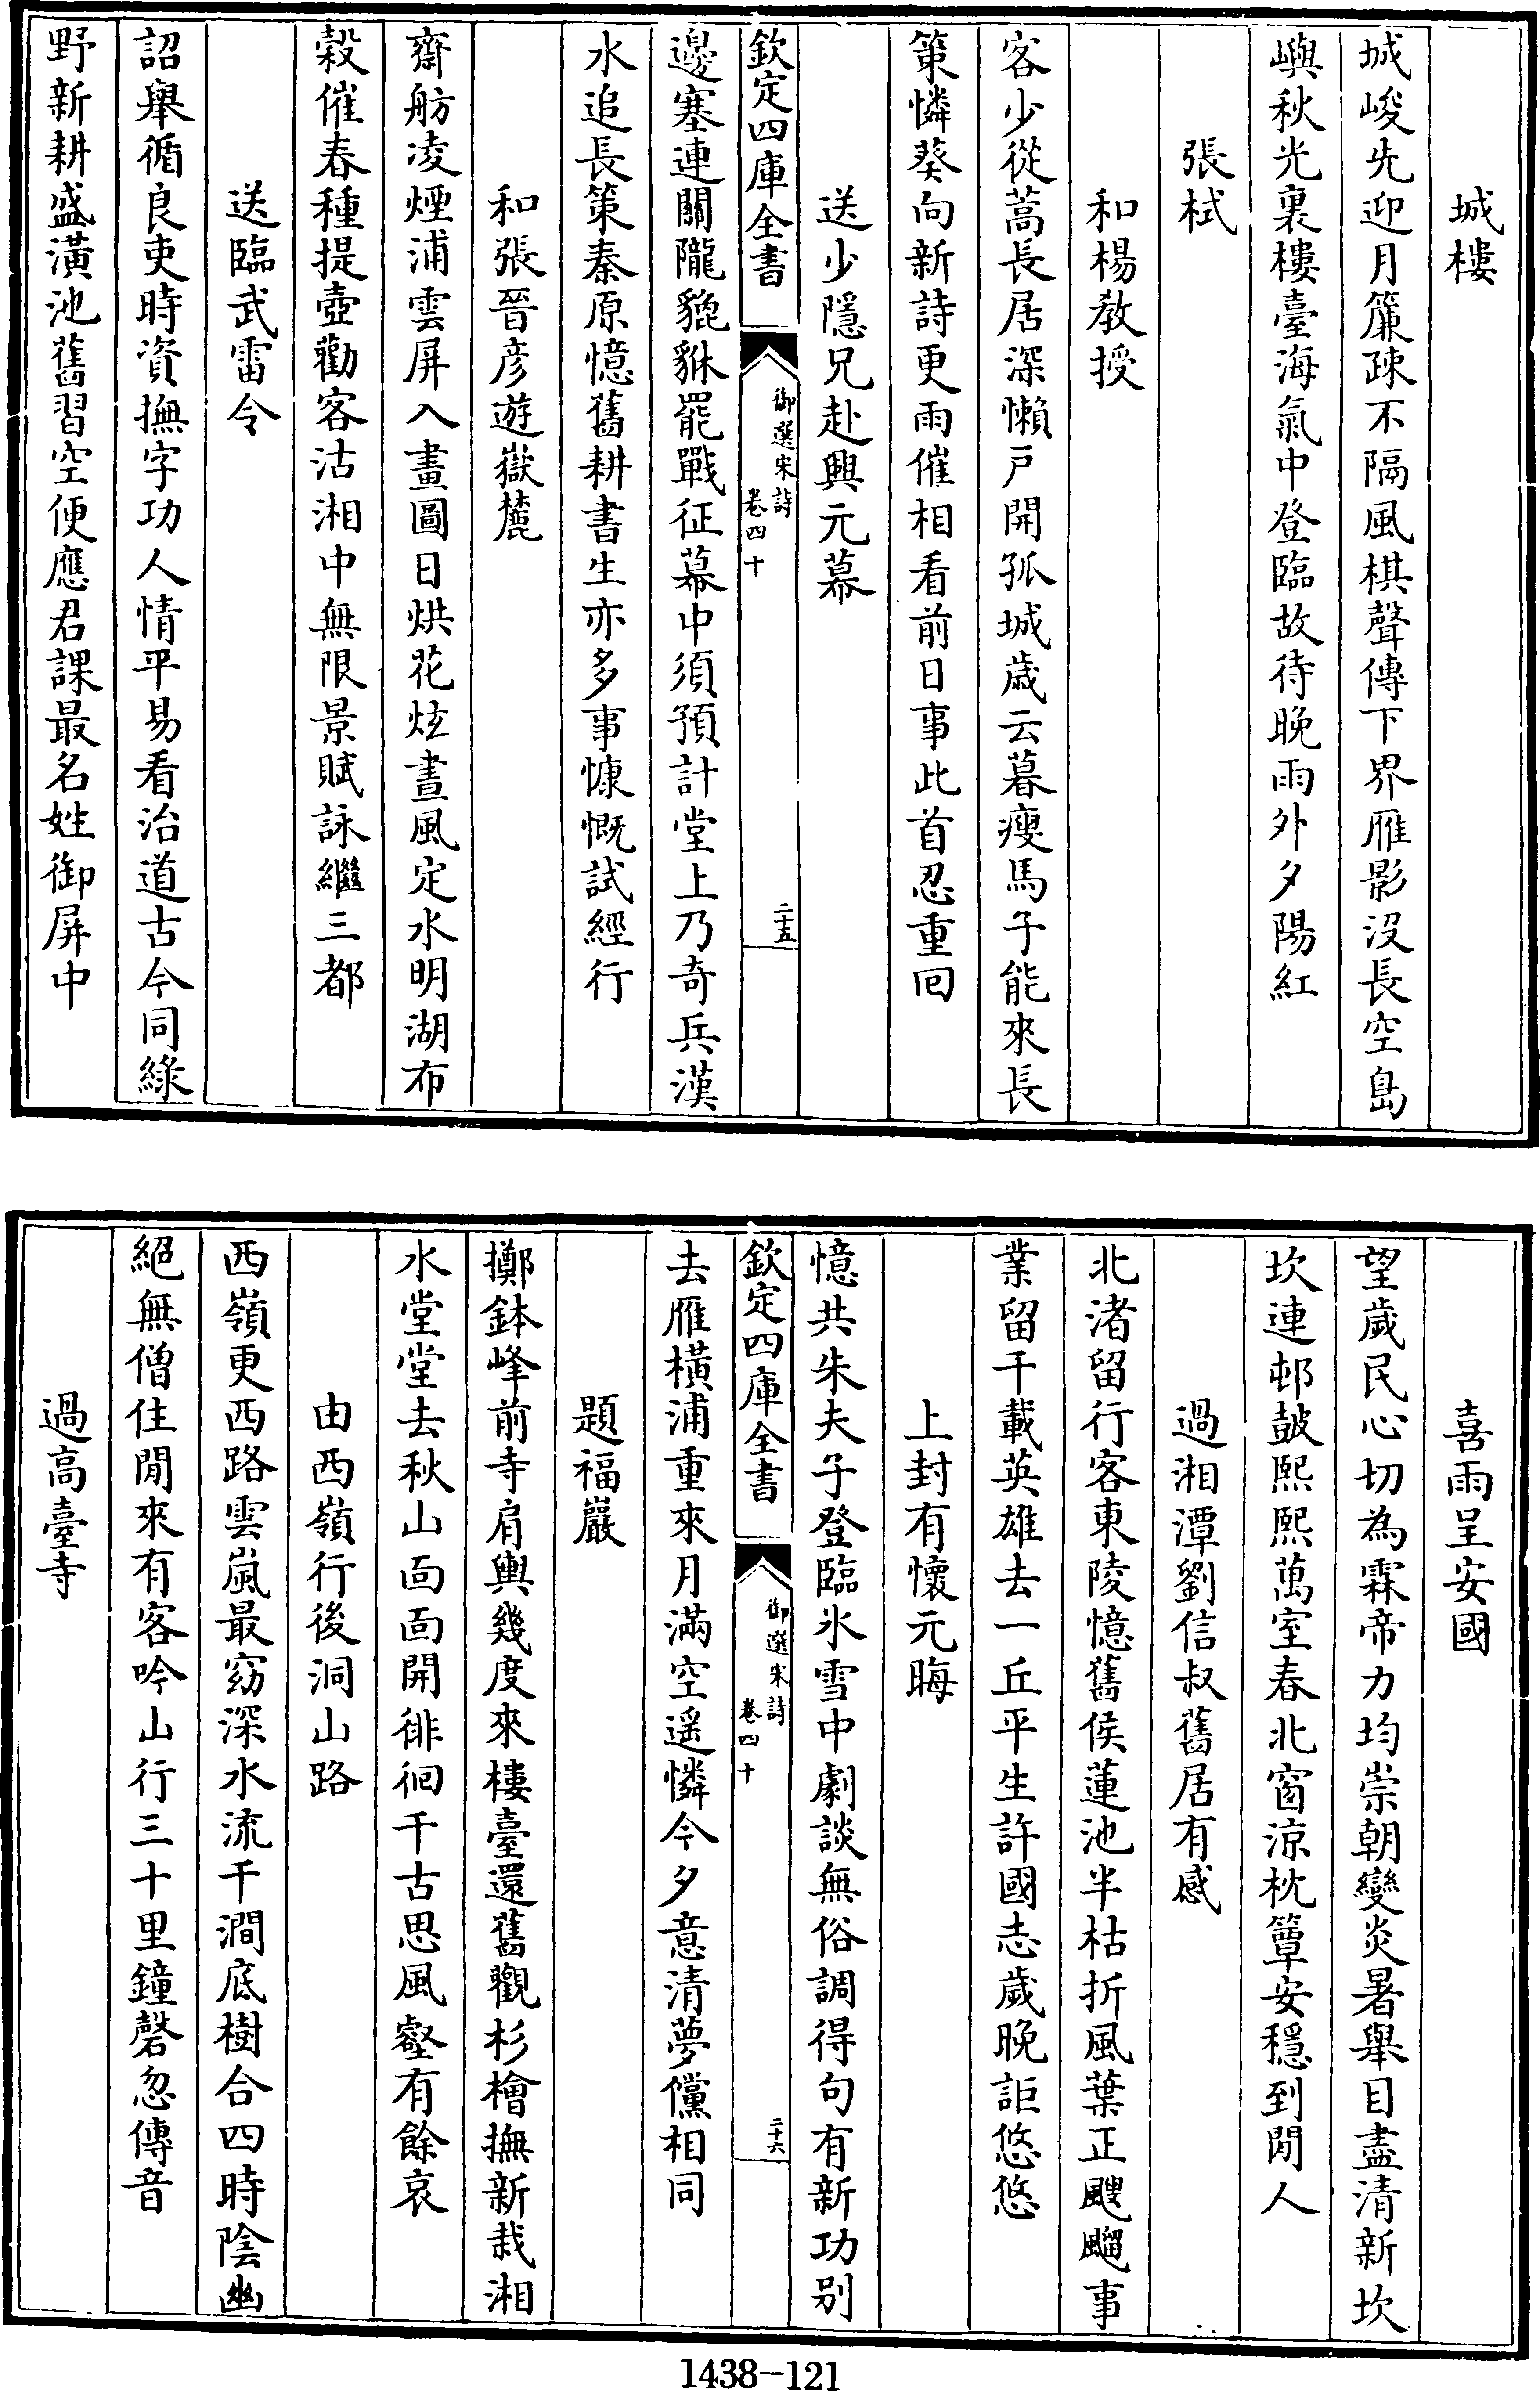 城樓
城峻先迎月簾疎不隔風棋聲傳下界雁影沒長空島
嶼秋光裏樓臺海氣中登臨故待晚雨外夕陽紅
張栻
和楊教授
客少從蒿長居深懶戸開孤城歲云暮瘦馬子能來長
策憐葵向新詩更雨催相看前日事此首忍重回
送少隱兄赴興元幕
欽定四庫全書
御選宋詩
卷四十
二十五
邊塞連關隴貔貅罷戰征幕中須預計堂上乃奇兵漢
水追長策秦原憶舊耕書生亦多事慷慨試經行
和張晉彦遊嶽麓
齋舫凌煙浦雲屏入畫圖日烘花炫晝風定水明湖布
穀催春種提壺勸客沽湘中無限景賦詠繼三都
送臨武雷令
詔舉循良吏時資撫字功人情平易看治道古今同綠
野新耕盛潢池舊習空便應君課最名姓御屏中
喜雨呈安國
望歲民心切為霖帝力均崇朝變炎暑舉目盡清新坎
坎連邨鼓熙熙萬室春北窗涼枕簟安穩到閒人
過湘潭劉信叔舊居有感
北渚留行客東陵憶舊侯蓮池半枯折風葉正颼飀事
業留千載英雄去一丘平生許國志歲晚詎悠悠
上封有懷元晦
憶共朱夫子登臨氷雪中劇談無俗調得句有新功别
欽定四庫全書
御選宋詩
卷四十
二十六
去雁横浦重來月滿空遥憐今夕意清夢儻相同
題福巖
擲鉢峰前寺肩輿幾度來樓臺還舊觀杉檜撫新栽湘
水堂堂去秋山面面開徘徊千古思風壑有餘哀
由西嶺行後洞山路
西嶺更西路雲嵐最窈深水流千澗底樹合四時陰幽
絕無僧住閒來有客吟山行三十里鐘磬忽傳音
過高臺寺
1438-121